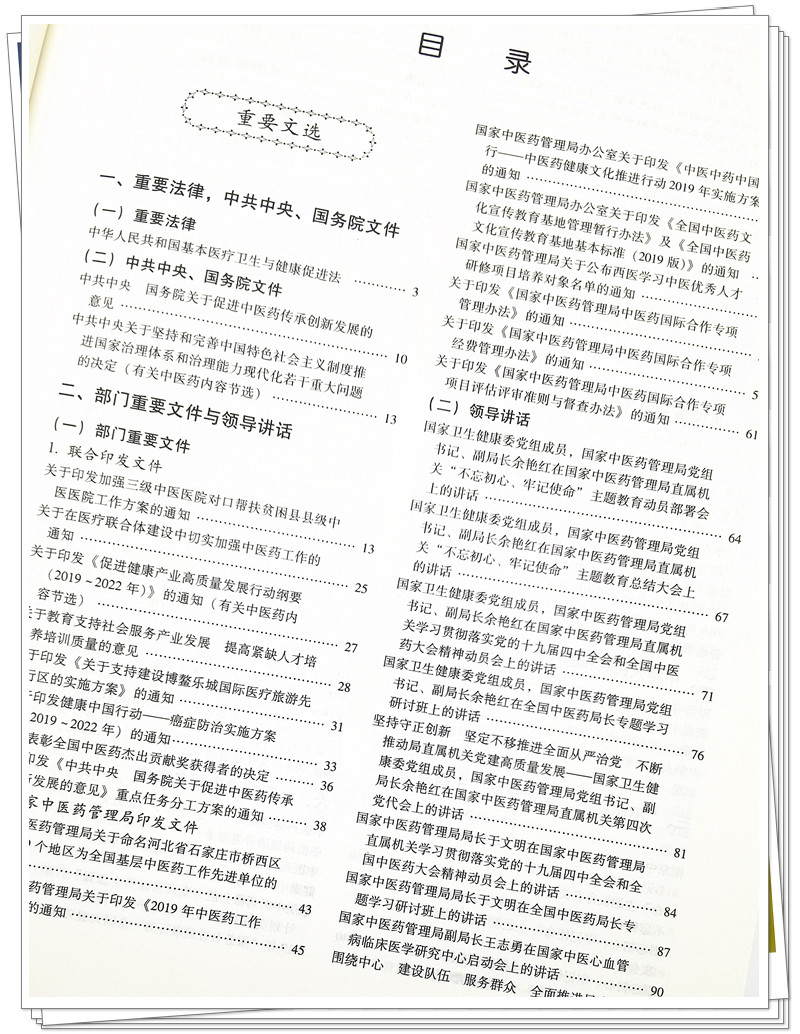 目 录
重要文选
一、重要法律，中共中央、国务院文件
（一）重要法律
中华人民共和国基本医疗卫生与健康促进法 ………… 3
（二）中共中央、国务院文件
中共中央 国务院关于促进中医药传承创新发展的
意见 ………… 10
中共中央关于坚持和完善中国特色社会主义制度推
进国家治理体系和治理能力现代化若干重大问题
的决定（有关中医药内容节选） ………… 13
二、部门重要文件与领导讲话
（一）部门重要文件
1. 联合印发文件
关于印发加强三级中医医院对口帮扶贫困县县级中
医医院工作方案的通知 ………… 13
关于在医疗联合体建设中切实加强中医药工作的
通知 ………… 25
关于印发《促进健康产业高质量发展行动纲要
（2019～2022 年）》的通知（有关中医药内
容节选） ………… 27
关于教育支持社会服务产业发展 提高紧缺人才培
养培训质量的意见 ………… 28
于印发《关于支持建设博鳌乐城国际医疗旅游先
行区的实施方案》的通知 ………… 31
印发健康中国行动——癌症防治实施方案
2019～2022 年）的通知 ………… 33
表彰全国中医药杰出贡献奖获得者的决定 ………… 36
印发《中共中央 国务院关于促进中医药传承
新发展的意见》重点任务分工方案的通知 ………… 38
家中医药管理局印发文件
医药管理局关于命名河北省石家庄市桥西区
个地区为全国基层中医药工作先进单位的
………… 43
药管理局关于印发《2019 年中医药工作
的通知 ………… 45
国家中医药管理局办公室关于印发《中医中药中国
行——中医药健康文化推进行动 2019 年实施方案
的通知 …………
国家中医药管理局办公室关于印发《全国中医药文
化宣传教育基地管理暂行办法》及《全国中医药
文化宣传教育基地基本标准（2019 版）》的通知 …
国家中医药管理局关于公布西医学习中医优秀人才
研修项目培养对象名单的通知 …………
关于印发《国家中医药管理局中医药国际合作专项
管理办法》的通知 …………
关于印发《国家中医药管理局中医药国际合作专项
经费管理办法》的通知 ………… 5
关于印发《国家中医药管理局中医药国际合作专项
项目评估评审准则与督查办法》的通知 ………… 61
（二）领导讲话
国家卫生健康委党组成员，国家中医药管理局党组
书记、副局长余艳红在国家中医药管理局直属机
关“不忘初心、牢记使命”主题教育动员部署会
上的讲话 ………… 64
国家卫生健康委党组成员，国家中医药管理局党组
书记、副局长余艳红在国家中医药管理局直属机
关“不忘初心、牢记使命”主题教育总结大会上
的讲话 ………… 67
国家卫生健康委党组成员，国家中医药管理局党组
书记、副局长余艳红在国家中医药管理局直属机
关学习贯彻落实党的十九届四中全会和全国中医
药大会精神动员会上的讲话 ………… 71
国家卫生健康委党组成员，国家中医药管理局党组
书记、副局长余艳红在全国中医药局长专题学习
研讨班上的讲话 ………… 76
坚持守正创新 坚定不移推进全面从严治党 不断
推动局直属机关党建高质量发展——国家卫生健
康委党组成员，国家中医药管理局党组书记、副
局长余艳红在国家中医药管理局直属机关第四次
党代会上的讲话 ………… 81
国家中医药管理局局长于文明在国家中医药管理局
直属机关学习贯彻落实党的十九届四中全会和全
国中医药大会精神动员会上的讲话 ………… 84
国家中医药管理局局长于文明在全国中医药局长专
题学习研讨班上的讲话 ………… 87
国家中医药管理局副局长王志勇在国家中医心血管
病临床医学研究中心启动会上的讲话 ………… 90
围绕中心 建设队伍 服务群众 全面推进